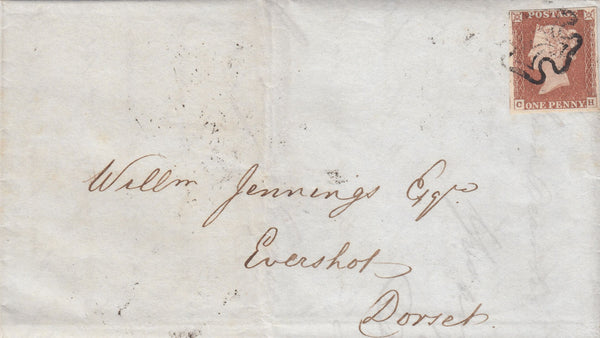 POSTAGE
C ONE PENNY H
Willm Jennings Esqre
Evershot
Dorset